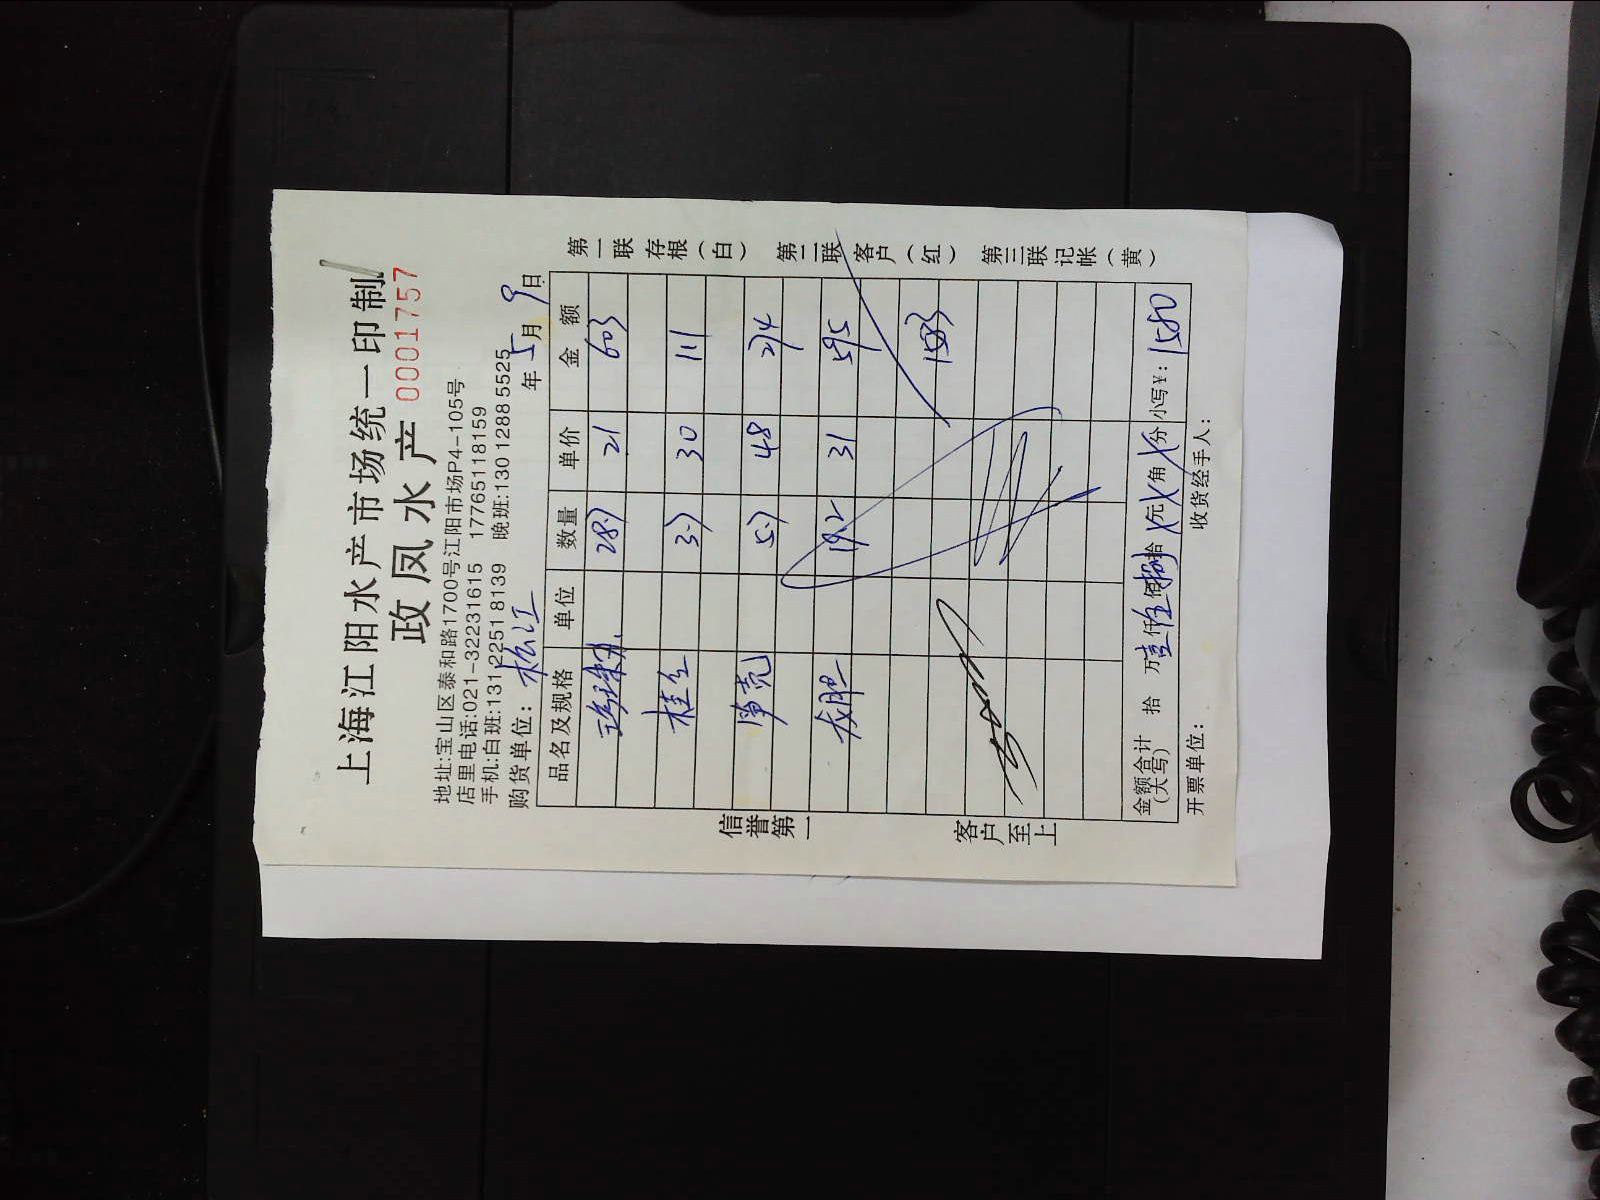 上海江阳水产市场统一印制
政凤水产 0001757
地址:宝山区泰和路1700号江阳市场P4-105号
店里电话:021-32231615 17765118159
手机:白班:131 2251 8139 晚班:130 1288 5525
购货单位: 松江 年 5 月 9 日
品名及规格 单位 数量 单价 金额
28.7 21 603
桂鱼 3.7 30 111
笋壳 5.7 48 274
19.2 31 595
1583
金额合计(大写) 拾 万 壹 仟 伍 佰 捌 拾 元 角 分 小写¥: 1580
开票单位: 收货经手人:
信誉第一
客户至上
第一联存根(白) 第二联客户(红) 第三联记帐(黄)